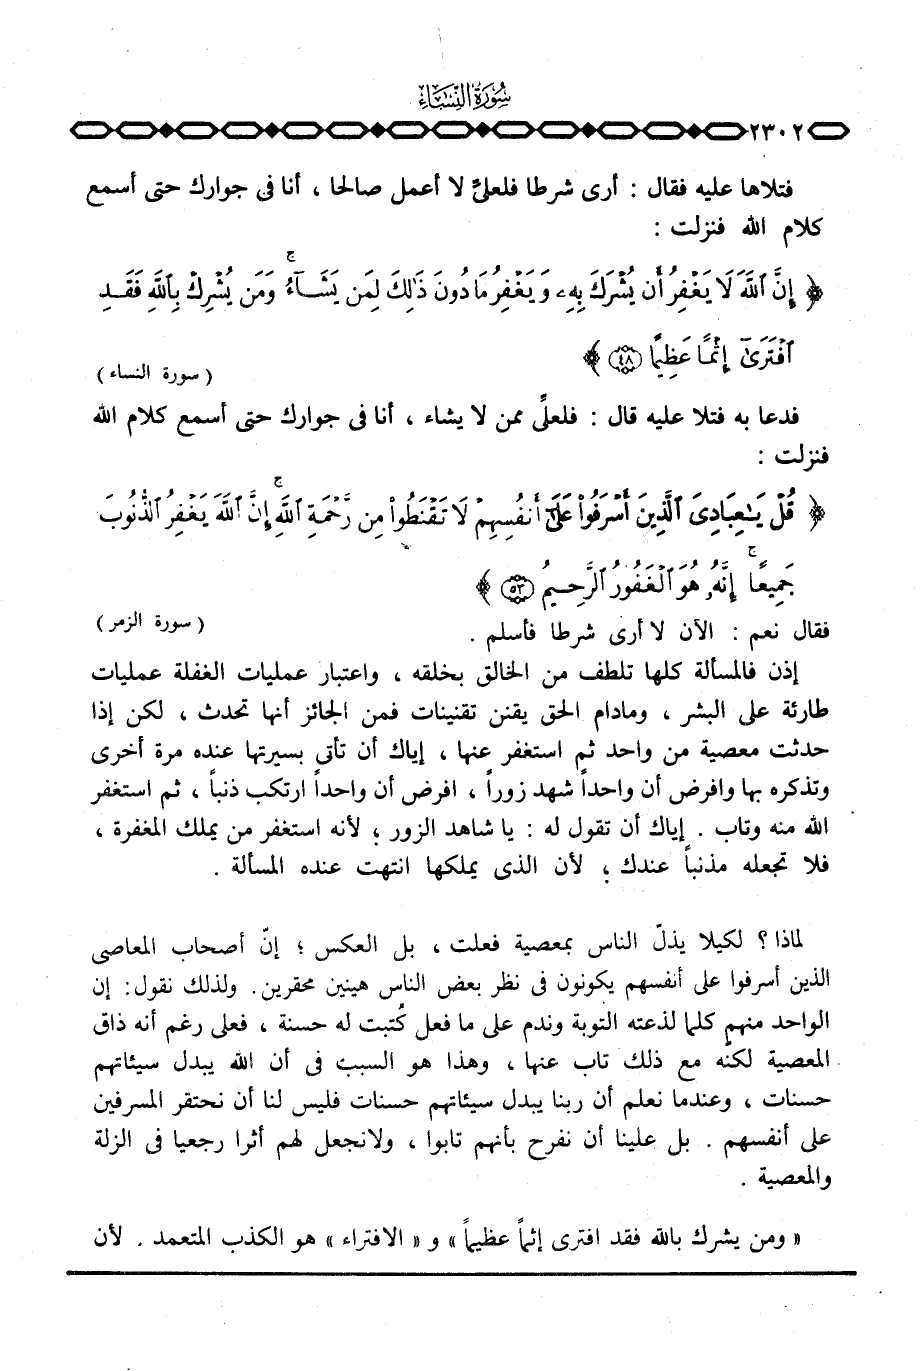 سُورَةُ النِّسَاءِ
٢٣٠٢
فتلاها عليه فقال : أرى شرطا فلعلىَّ لا أعمل صالحا ، أنا فى جوارك حتى أسمع
كلام الله فنزلت :
﴿ إِنَّ ٱللَّهَ لَا يَغْفِرُ أَن يُشْرَكَ بِهِۦ وَيَغْفِرُ مَا دُونَ ذَٰلِكَ لِمَن يَشَآءُ ۚ وَمَن يُشْرِكْ بِٱللَّهِ فَقَدِ
ٱفْتَرَىٰٓ إِثْمًا عَظِيمًا ﴿٤٨﴾ ﴾
( سورة النساء )
فدعا به فتلا عليه قال : فلعلَّى ممن لا يشاء ، أنا فى جوارك حتى أسمع كلام الله
فنزلت :
﴿ قُلْ يَٰعِبَادِىَ ٱلَّذِينَ أَسْرَفُوا۟ عَلَىٰٓ أَنفُسِهِمْ لَا تَقْنَطُوا۟ مِن رَّحْمَةِ ٱللَّهِ ۚ إِنَّ ٱللَّهَ يَغْفِرُ ٱلذُّنُوبَ
جَمِيعًا ۚ إِنَّهُۥ هُوَ ٱلْغَفُورُ ٱلرَّحِيمُ ﴿٥٣﴾ ﴾
( سورة الزمر )
فقال نعم : الآن لا أرى شرطا فأسلم .
إذن فالمسألة كلها تلطف من الخالق بخلقه ، واعتبار عمليات الغفلة عمليات
طارئة على البشر ، ومادام الحق يقنن تقنينات فمن الجائز أنها تحدث ، لكن إذا
حدثت معصية من واحد ثم استغفر عنها ، إياك أن تأتى بسيرتها عنده مرة أخرى
وتذكره بها وافرض أن واحداً شهد زوراً ، افرض أن واحداً ارتكب ذنباً ، ثم استغفر
الله منه وتاب . إياك أن تقول له : يا شاهد الزور ؛ لأنه استغفر من يملك المغفرة ،
فلا تجعله مذنباً عندك ؛ لأن الذى يملكها انتهت عنده المسألة .
لماذا ؟ لكيلا يذلّ الناس بمعصية فعلت ، بل العكس ؛ إنّ أصحاب المعاصى
الذين أسرفوا على أنفسهم يكونون فى نظر بعض الناس هينين محقرين . ولذلك نقول : إن
الواحد منهم كلما لذعته التوبة وندم على ما فعل كُتبت له حسنة ، فعلى رغم أنه ذاق
المعصية لكنّه مع ذلك تاب عنها ، وهذا هو السبت فى أن الله يبدل سيئاتهم
حسنات ، وعندما نعلم أن ربنا يبدل سيئاتهم حسنات فليس لنا أن نحتقر المسرفين
على أنفسهم . بل علينا أن نفرح بأنهم تابوا ، ولانجعل لهم أثرا رجعيا فى الزلة
والمعصية .
« ومن يشرك بالله فقد افترى إثماً عظيماً » و « الافتراء » هو الكذب المتعمد . لأن